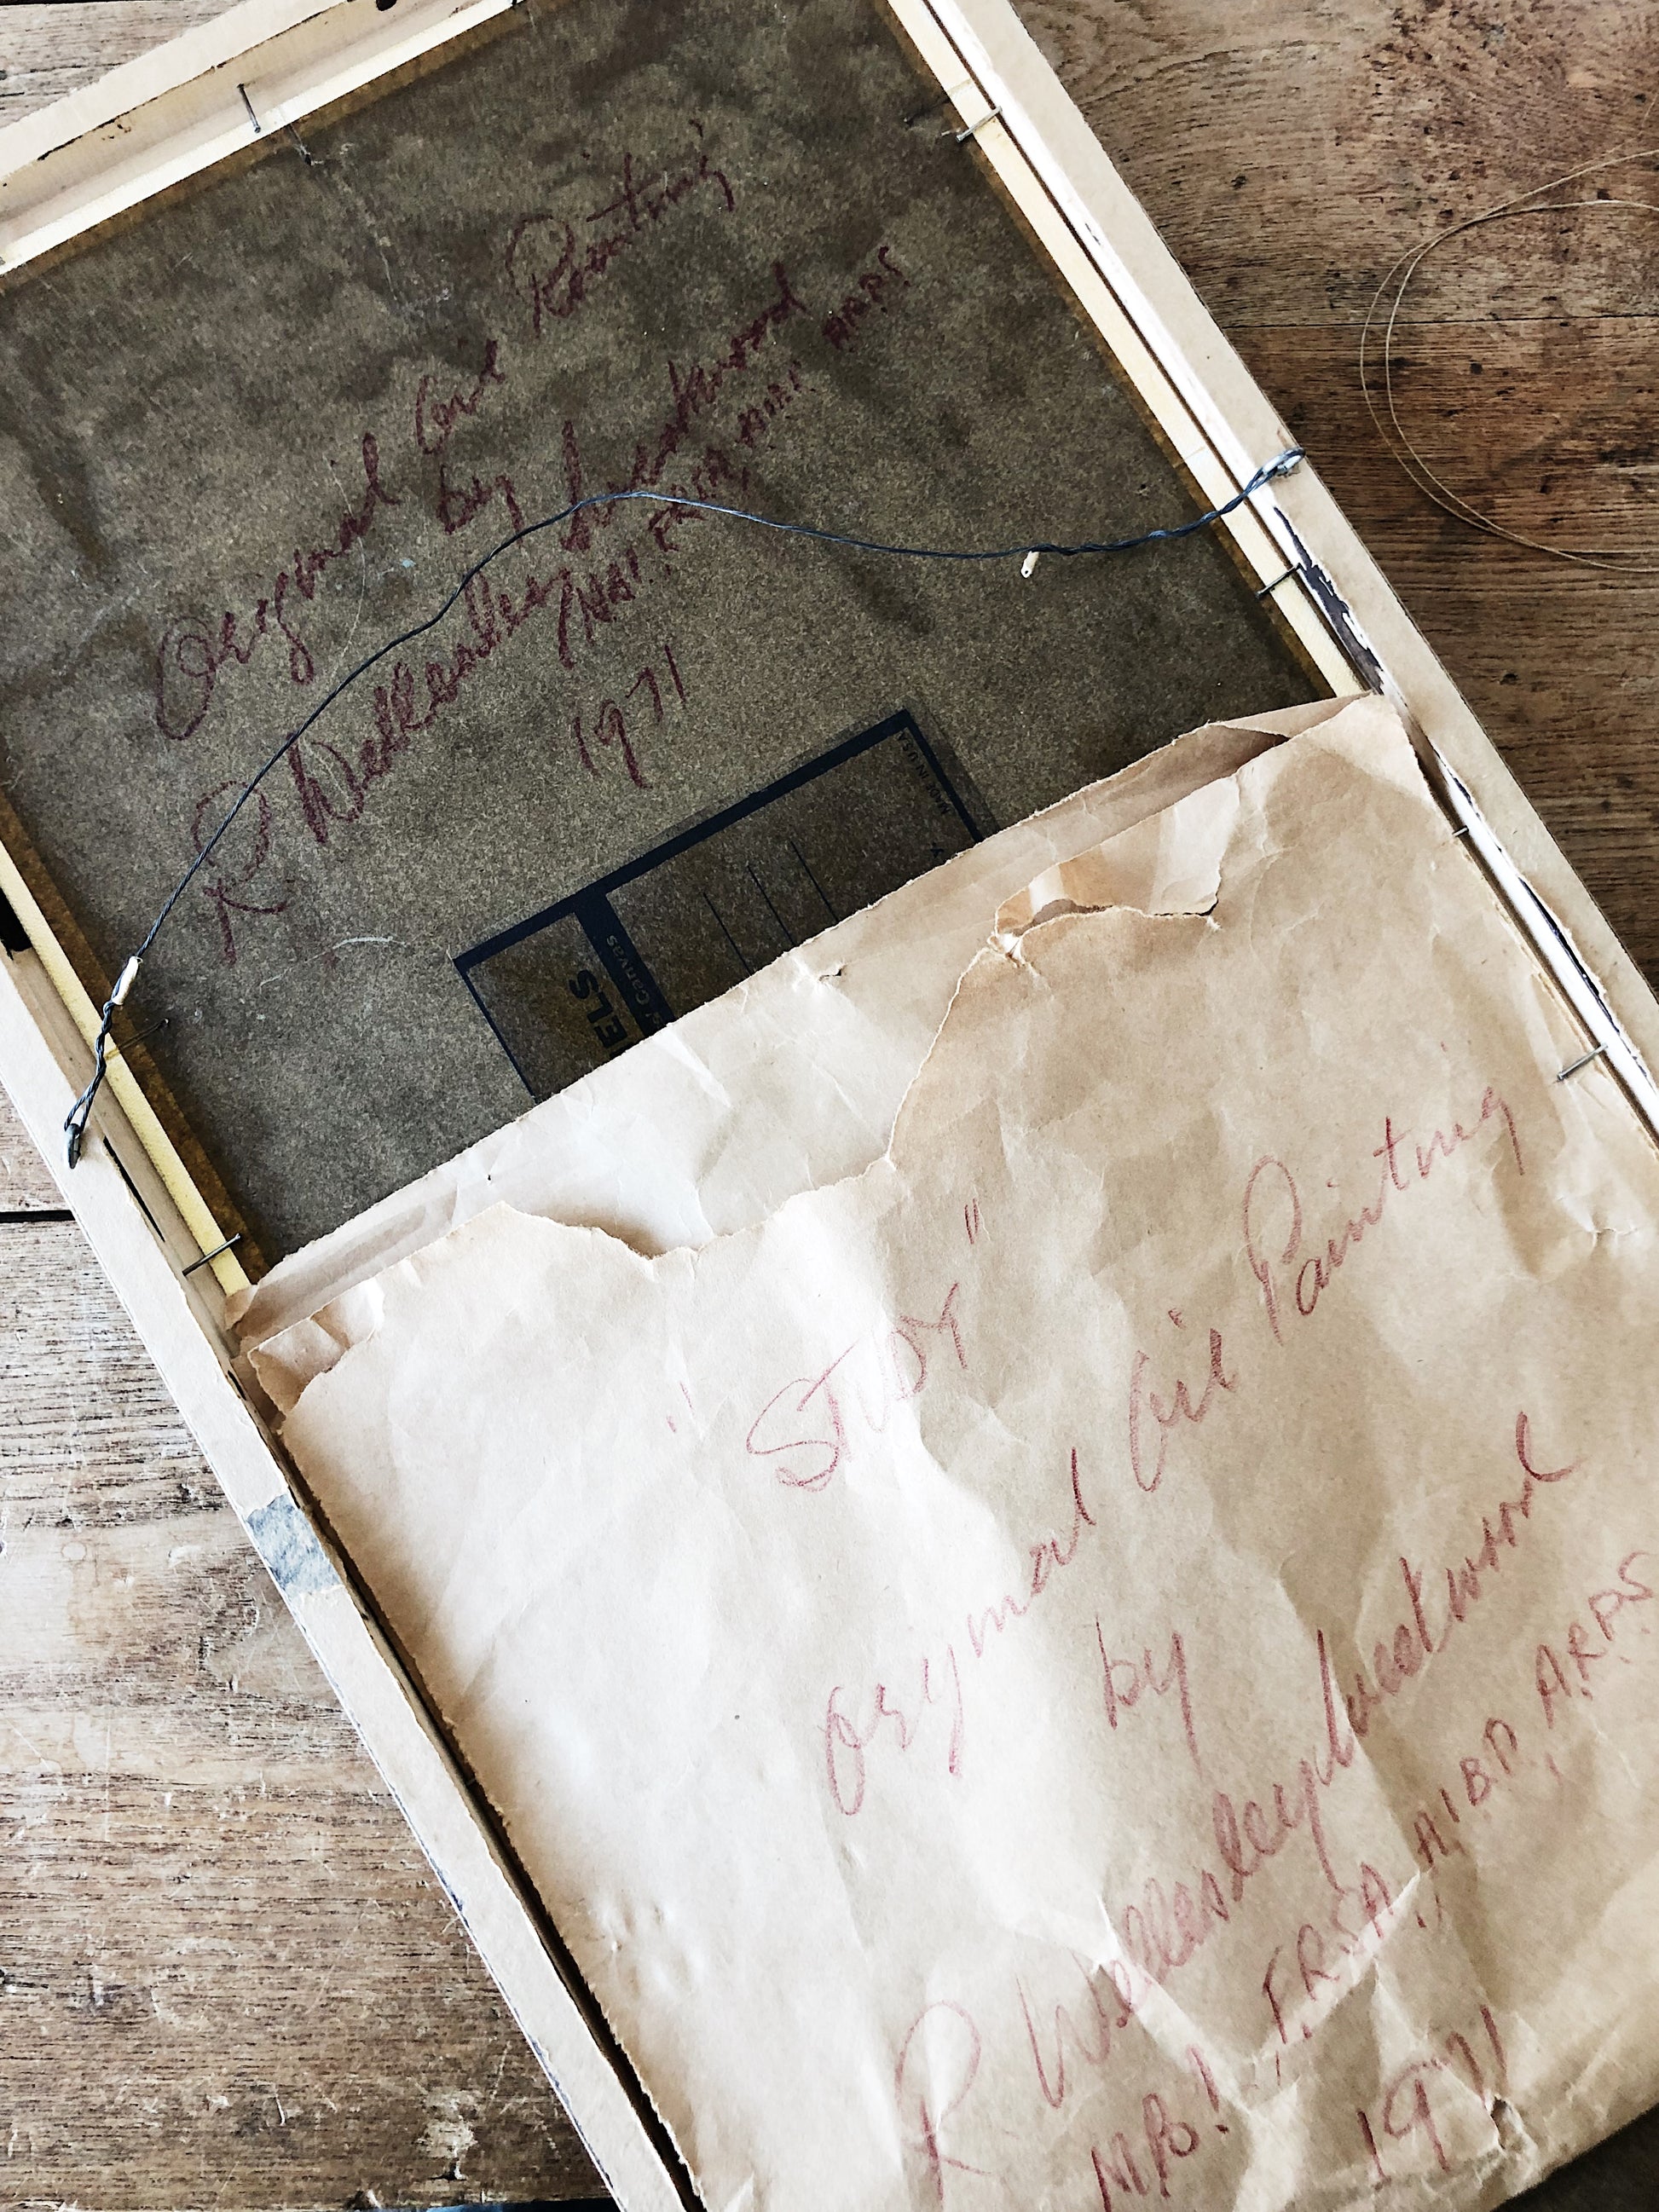 Original Oil Painting
by
R Wellesley Lockwood
1971
MADE IN USA
Canvas
ELS
"STUDY"
Original Oil Painting
by
R Wellesley Lockwood
F.R.S.A. A.I.B.P, A.R.P.S
1971